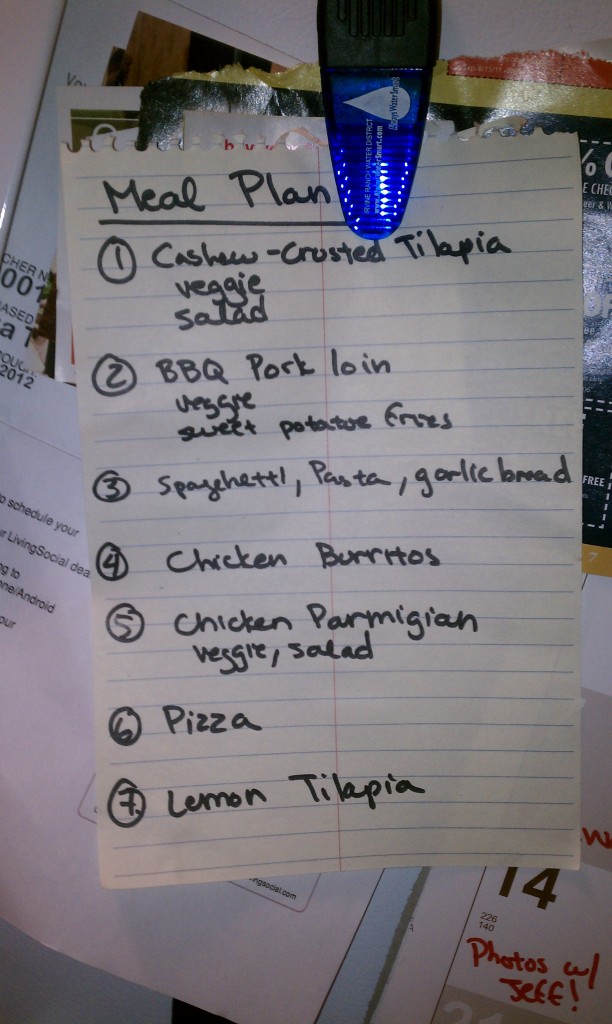 Meal Plan
① Cashew-Crusted Tilapia
veggie
salad
② BBQ Pork loin
veggie
sweet potatoe fries
③ Spaghetti, Pasta, garlic bread
④ Chicken Burritos
⑤ Chicken Parmigian
veggie, salad
⑥ Pizza
⑦ Lemon Tilapia
IRVINE RANCH WATER DISTRICT
AlwaysWaterSmart
001
BASED
2012
to schedule your
LivingSocial dea
ne/Android
our
FREE
7
14
226
140
Photos w/
Jeff!